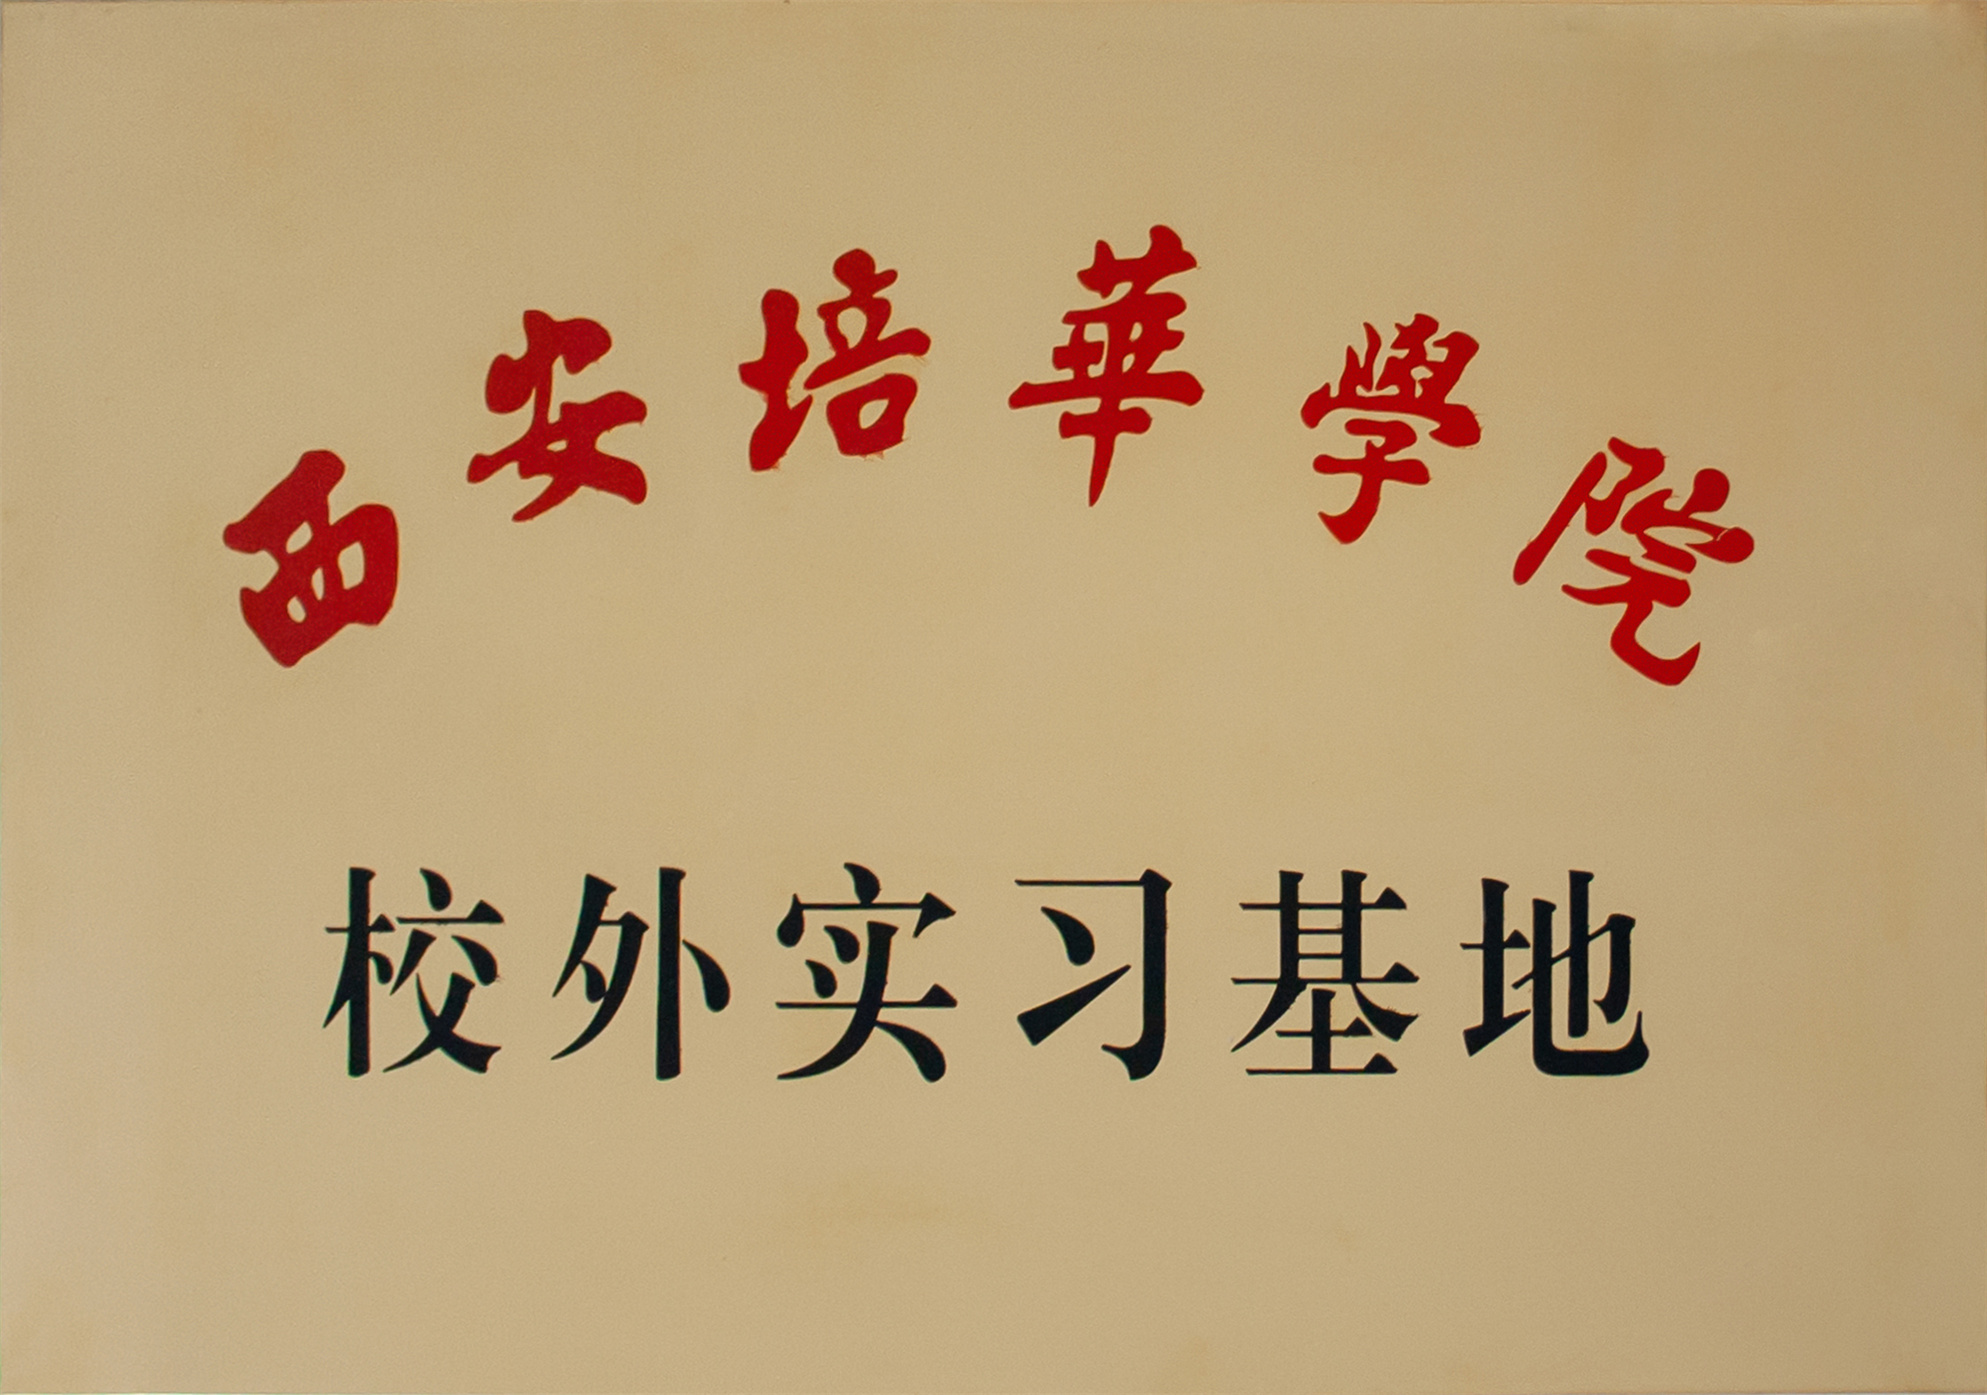 西安培華學院
校外实习基地